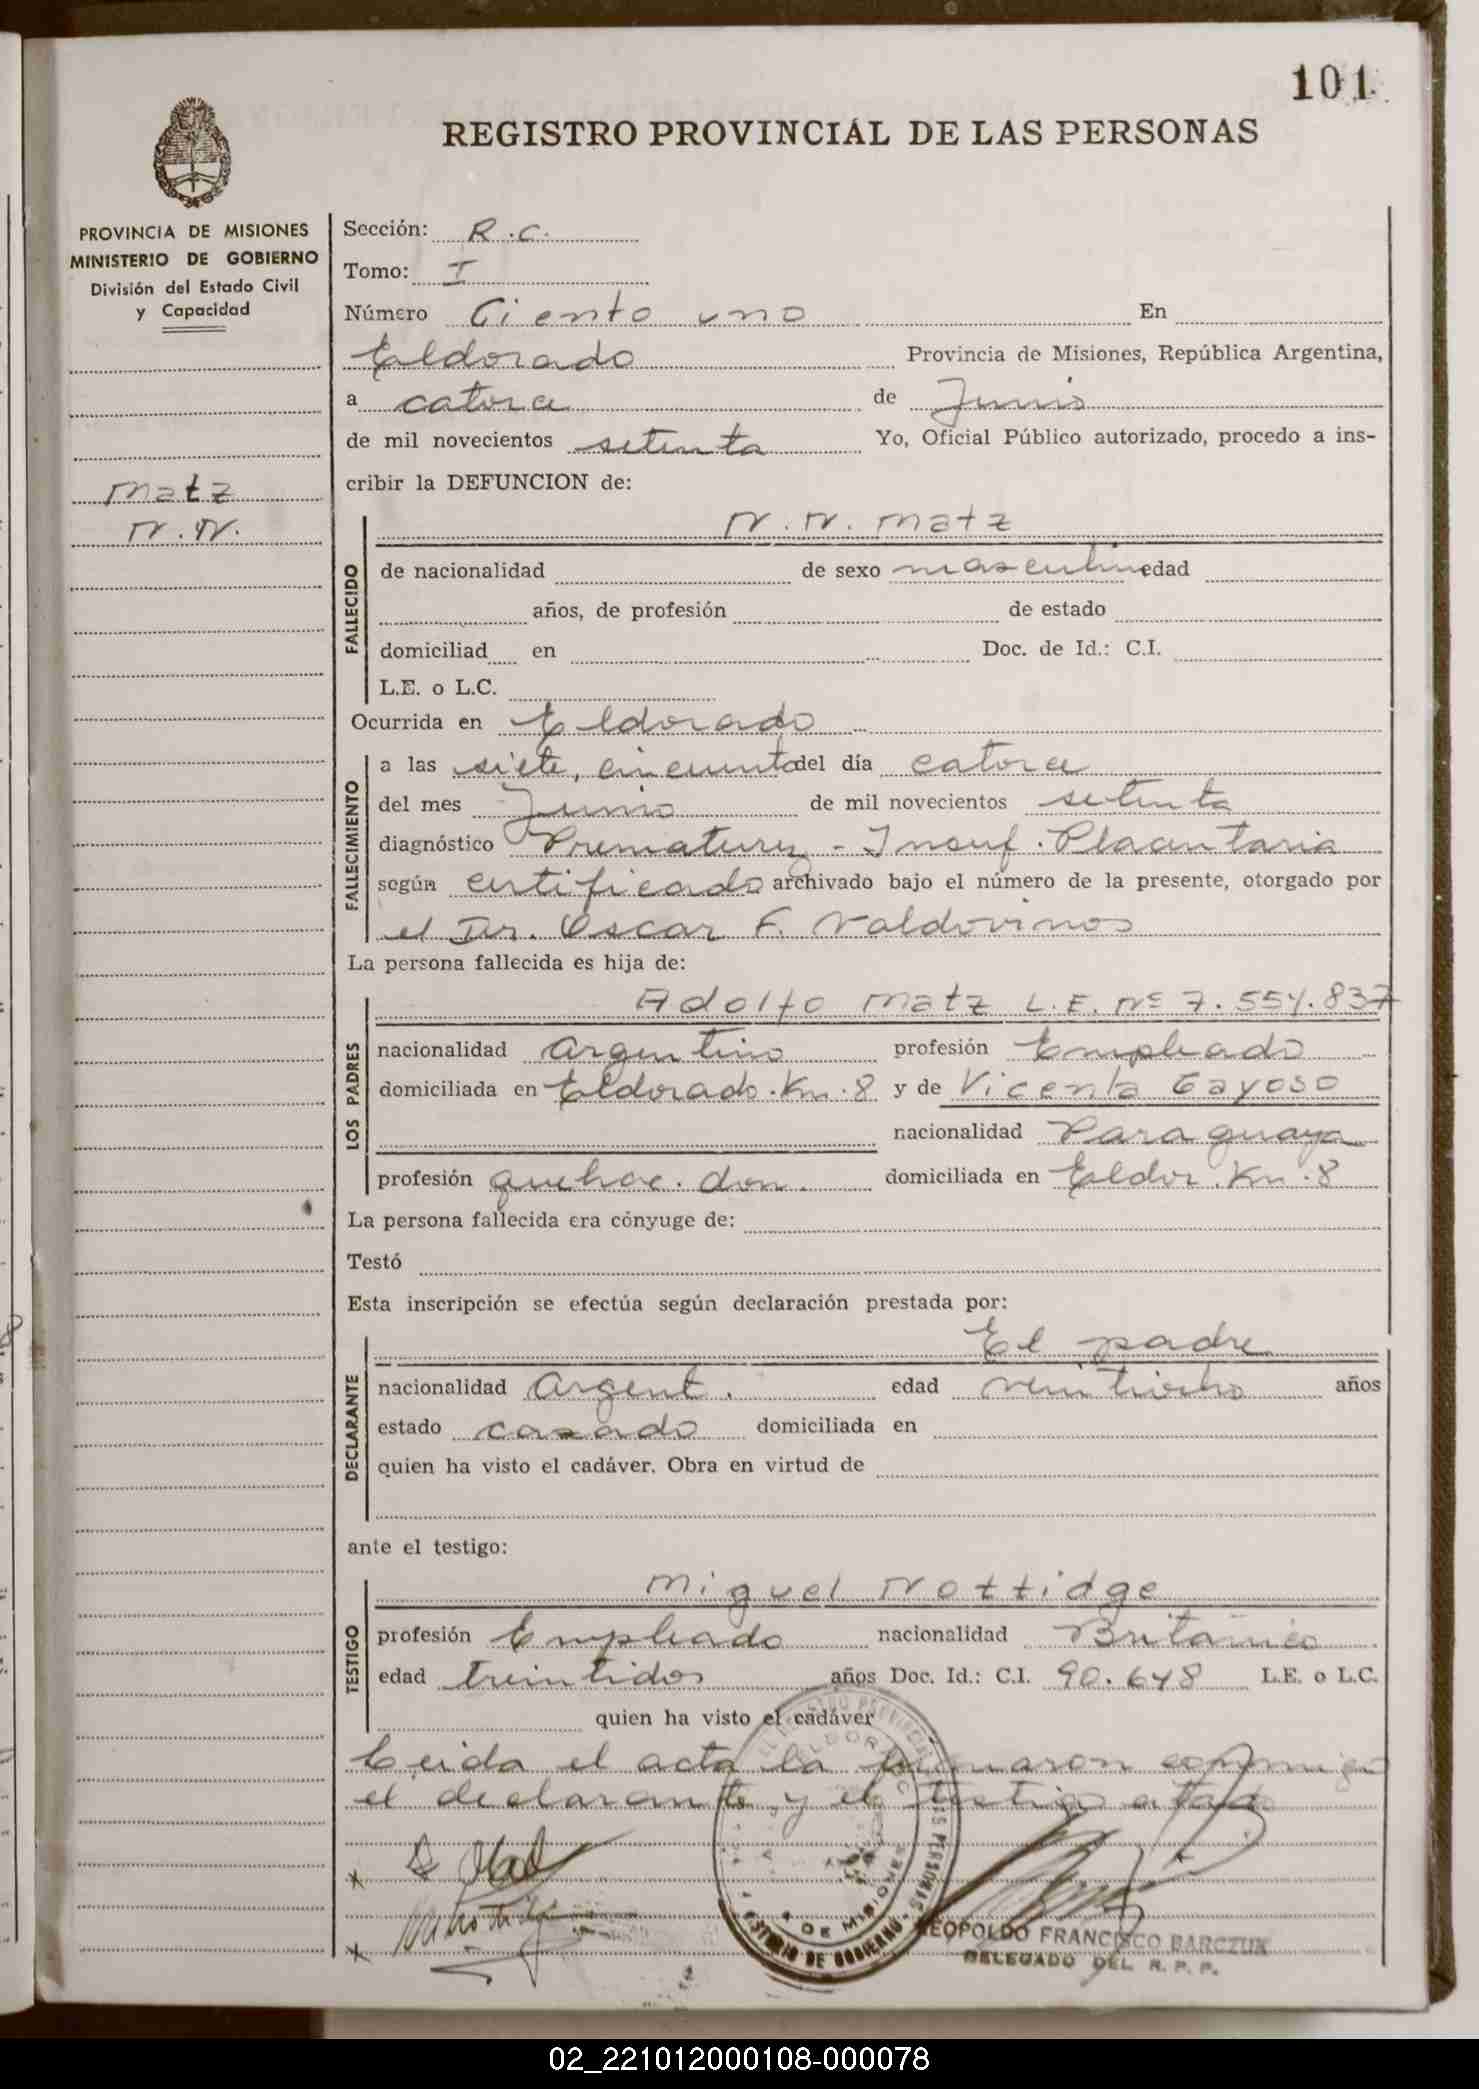 101
REGISTRO PROVINCIAL DE LAS PERSONAS
PROVINCIA DE MISIONES
MINISTERIO DE GOBIERNO
División del Estado Civil
y Capacidad
Matz
N.N.
Sección: R.C.
Tomo: I
Número Ciento uno En
Eldorado Provincia de Misiones, República Argentina,
a catorce de Junio
de mil novecientos setenta Yo, Oficial Público autorizado, procedo a ins-
cribir la DEFUNCION de:
N.N. Matz
FALLECIDO
de nacionalidad de sexo masculino edad
años, de profesión de estado
domiciliad en Doc. de Id.: C.I.
L.E. o L.C.
Ocurrida en Eldorado
FALLECIMIENTO
a las siete, cincuenta del día catorce
del mes Junio de mil novecientos setenta
diagnóstico Prematurez - Insuf. Placentaria
según certificado archivado bajo el número de la presente, otorgado por
el Dr. Oscar F. Valdovinos
La persona fallecida es hija de:
LOS PADRES
Adolfo Matz L.E. Nº 7.554.837
nacionalidad Argentino profesión Empleado
domiciliada en Eldorado. Km. 8 y de Vicenta Gayoso
nacionalidad Paraguaya
profesión quehac. dom. domiciliada en Eldor. Km. 8
La persona fallecida era cónyuge de:
Testó
Esta inscripción se efectúa según declaración prestada por:
DECLARANTE
El padre
nacionalidad Argent. edad veintiocho años
estado casado domiciliada en
quien ha visto el cadáver. Obra en virtud de
ante el testigo:
TESTIGO
Miguel Nottidge
profesión Empleado nacionalidad Británico
edad treintidos años Doc. Id.: C.I. 90.648 L.E. o L.C.
quien ha visto el cadáver
Leida el acta la firmaron conmigo
el declarante y el testigo citado
ELDORADO
DE MISIONES
LEOPOLDO FRANCISCO BARCZUK
DELEGADO DEL R. P. P.
02_221012000108-000078